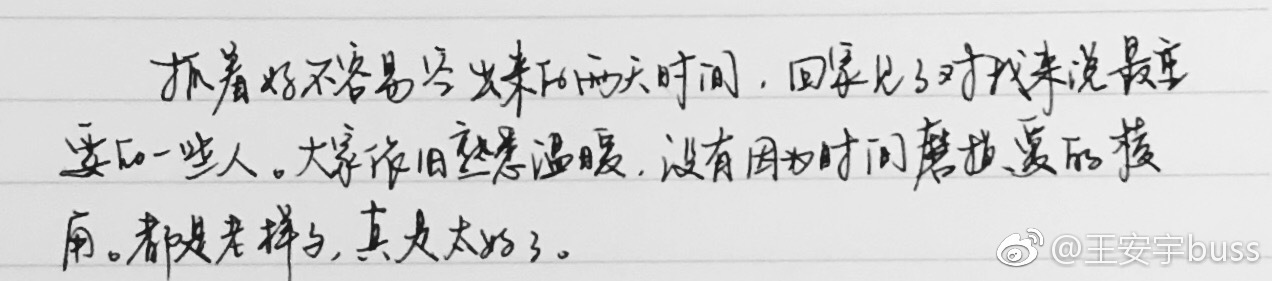 抓着好不容易空出来的两天时间，回家见了对我来说最重
要的一些人。大家依旧熟悉温暖，没有因为时间磨损爱的棱
角。都是老样子，真是太好了。
@王安宇buss